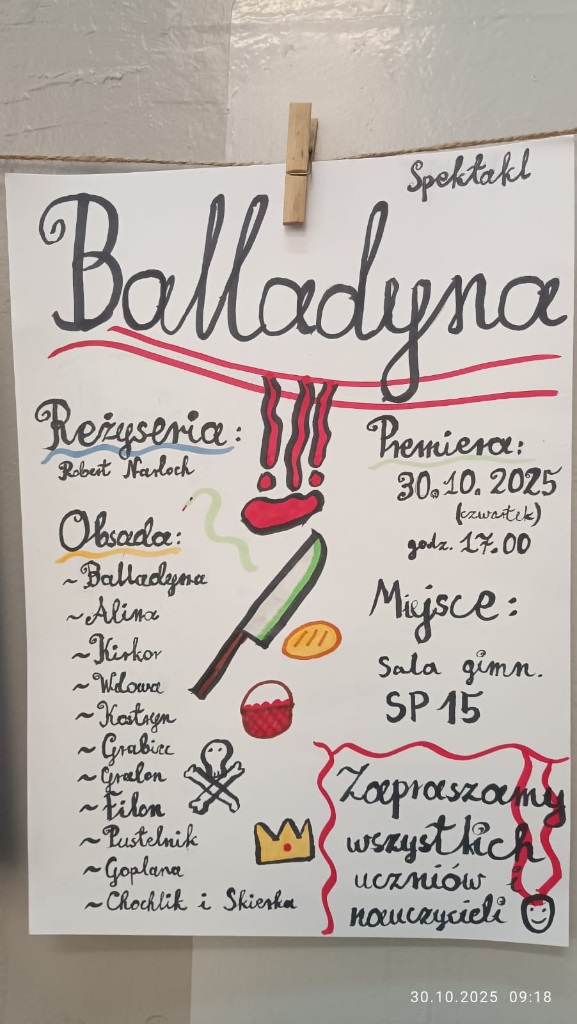 Spektakl
Balladyna
Reżyseria:
Robert Narloch
Obsada:
~Balladyna
~Alina
~Kirkor
~Wdowa
~Kostryn
~Grabiec
~Gralon
~Filon
~Pustelnik
~Goplana
~Chochlik i Skierka
Premiera:
30.10.2025
(czwartek)
godz. 17.00
Miejsce:
Sala gimn.
SP 15
Zapraszamy
wszystkich
uczniów i
nauczycieli
30.10.2025 09:18